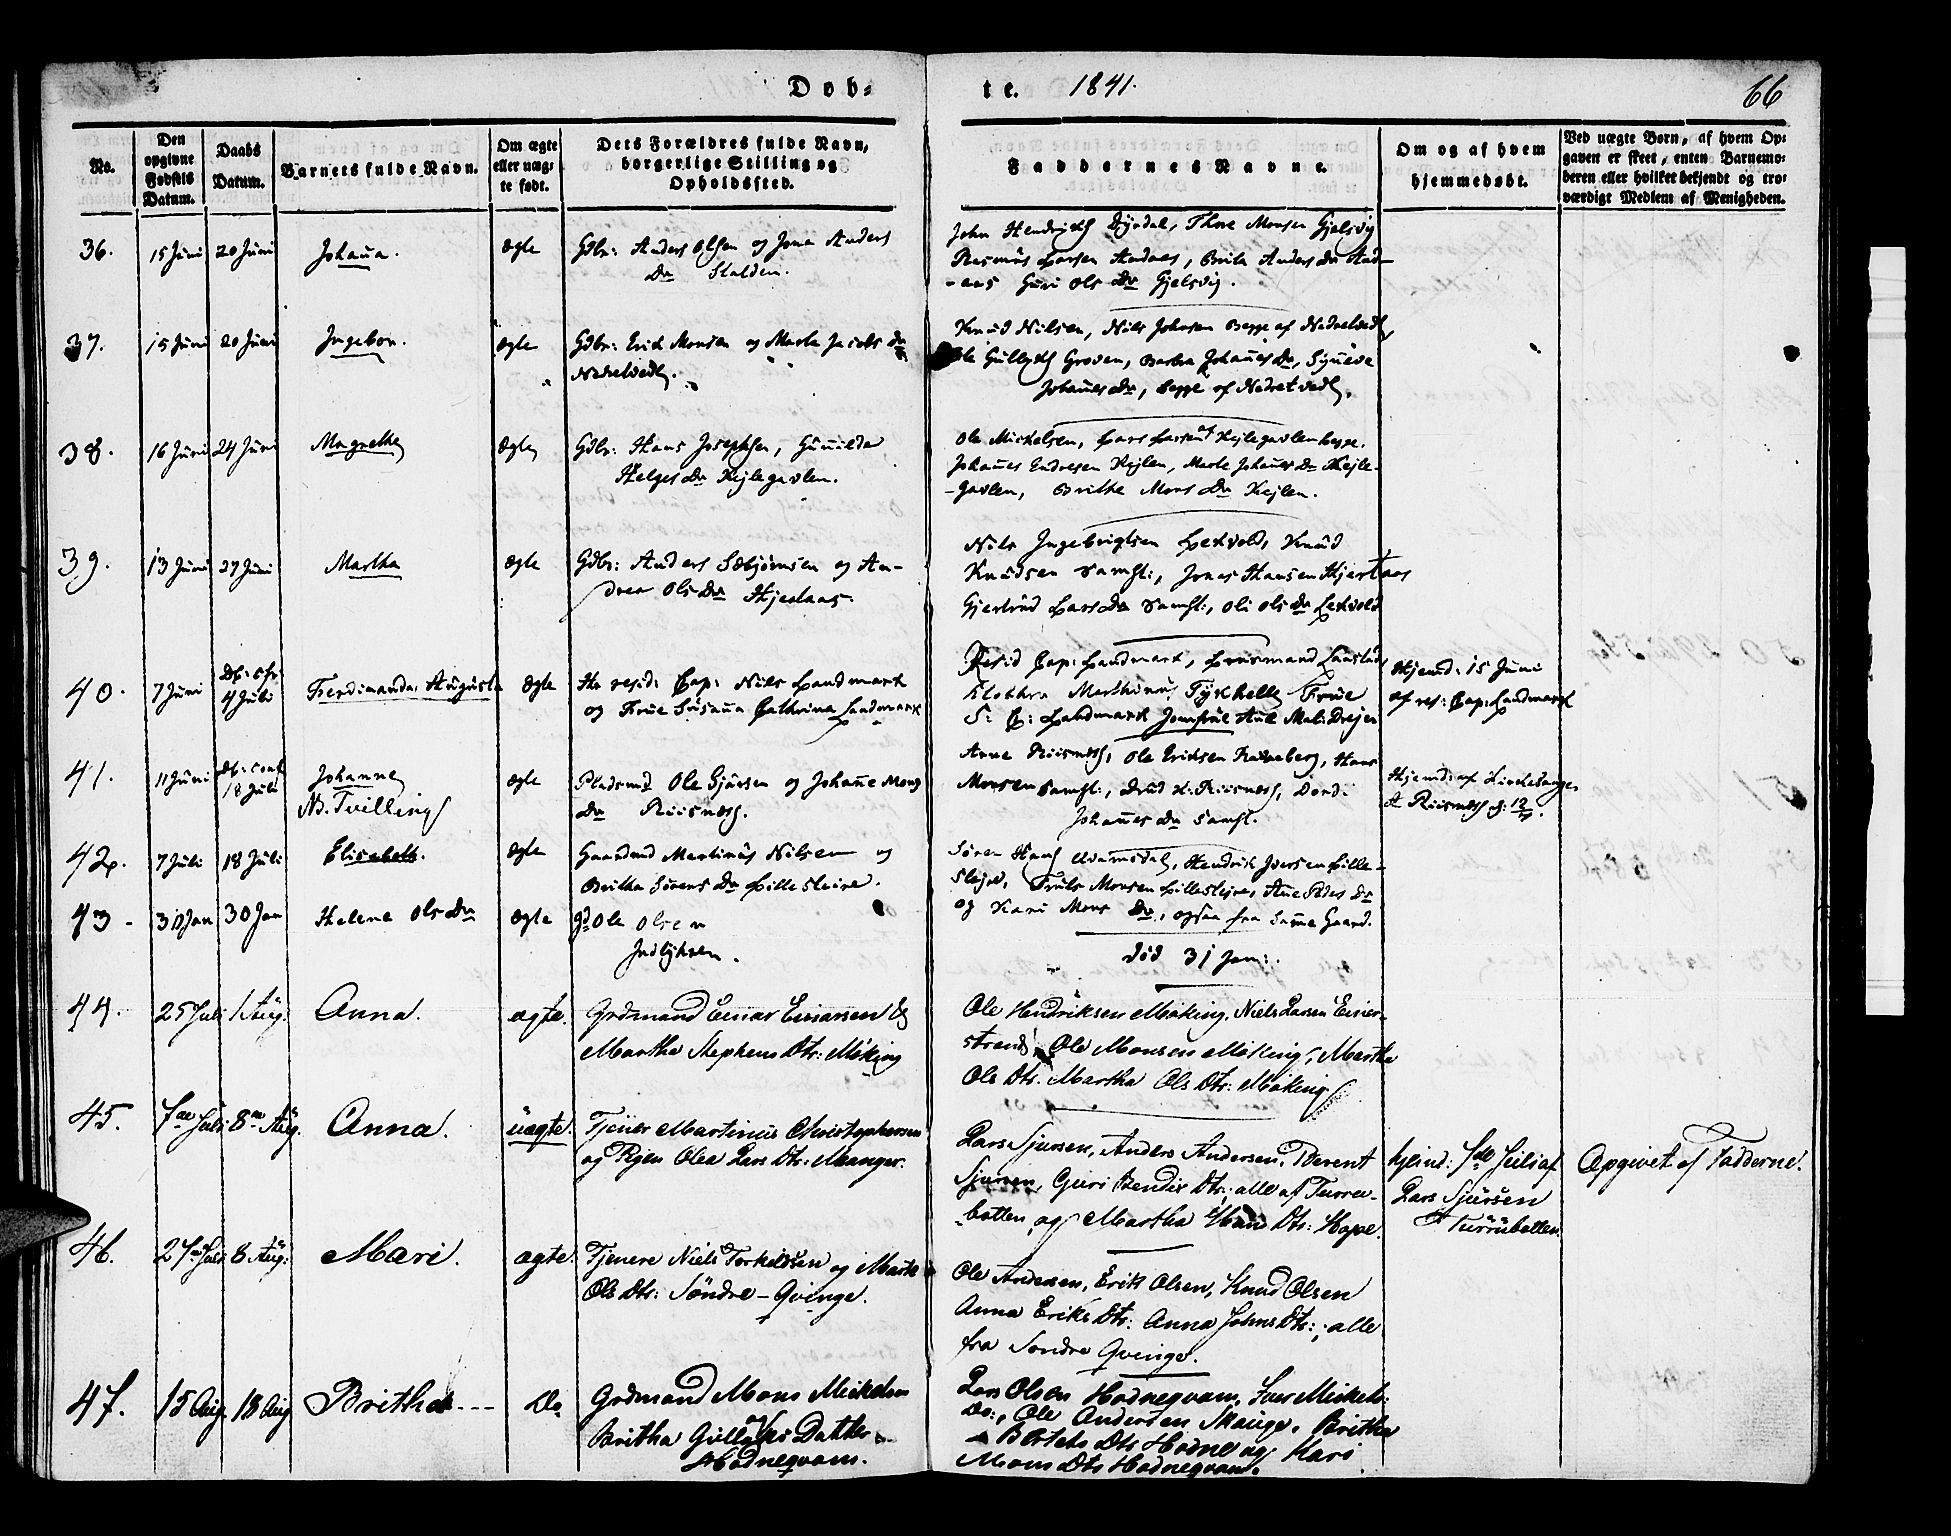 Døb-
te. 1841.
66
No.
Den opgivne Fødsels Datum.
Daabs Datum.
Barnets fulde Navn.
Om ægte eller uægte født.
Dets Forældres fulde Navn, borgerlige Stilling og Opholdssted.
Faddernes Navne.
Om og af hvem hjemmedøbt.
Ved uægte Børn, af hvem Opgaven er skeet, enten Barnemoderen eller hvilket bekjendt og troværdigt Medlem af Menigheden.
36. 15 Juni 20 Juni Johanna. ægte
Gdbr: Anders Olsen og Anders
Dr Stalden.
John Dyrdal, Thore Monsen Gjelsvig
Rasmus Larsen Andaas, Brita Anders Dr And-
-aas Guri Ols Dr Gjelsvig.
37. 15 Juni 20 Juni Ingebor. ægte
Gdbr: Erik Monsen og Marta Jacobs Dr
Knud Nilsen, Nils Johnsen begge af
Ole Groven, Barbra Johannes Dr, Synneve
Johannes Dr, begge af
38. 16 Juni 24 Juni Magrethe ægte
Gdbr: Hans Josephsen, Gunilda
Helges Dr Kejlegavlen.
Ole Mickelsen, Lars Larsen Kejlegavlen begge.
Johannes Endresen Kejlen, Marta Johannes Dr Kejle-
-gavlen, Brithe Mons Dr Kejlen.
39. 13 Juni 27 Juni Martha ægte
Gdbr: Anders Sebjørnsen og An-
drea Ols Dr Hjertaas.
Nils Ingebrigtsen Lexvold, Knud
Knudsen samst:, Jonas Hansen Hjertaas
Gjertrud Lars Dr samst:, Oli Ols Dr Lexvold
40. 7 Juni 4 Juli Ferdinanda Augusta ægte
Hr resid: Cap: Nils Landmark
og Frue Susanna Cathrina Landmark
Resid Cap: Landmark, Lensmand
Klokker Marthinus Frue
S: C: Landmark Jomfrue Ane Mal: Drejer
Hjemd: 15 Juni
af res: Cap: Landmark
41. 11 Juni Db: conf 18 Juli Johanne
NB. Tvilling ægte
Pladsmd Ole Sjursen og Johanne Mons
Dr Riisnæs.
Anne Riisnæs, Ole Eriksen Hans
Monsen samst:, Riisnæs, Dordi
Johannes Dr samst.
Hjemd: af Kirkesanger
Riisnæs d: 12/7.
42. 7 Juli 18 Juli Elisabeth. ægte
Gaardmd Martinus Nilsen og
Britha Sørens Dr Lillesleire.
Søren Hans Hendrik Iversen Lille-
slejre, Truls Monsen Lilleslejre, Ane Peders Dr
og Kari Mons Dr, ogsaa fra samme Gaard.
43 30 Jan 30 Jan Helene Ols Dr ægte
gd Ole Olsen
død 31 Jan:.
44. 25 Juli 1 Aug: Anna. ægte.
Grdmand Einar Einarsen &
Martha Stephens Dtr: Møking
Ole Hendriksen Møking, Niels Larsen Einer-
strand, Ole Monsen Møking, Martha
Ols Dtr: Martha Ols Dtr: Møking
45. 7de Juli 8de Aug. Anna. uægte.
Tjener Martinus Christophersen
og Pigen Olea Lars Dtr: Manger.
Lars Sjursen, Anders Andersen, Berent
Sjursen, Guri Bendix Dtr: alle af Turre-
-botten og Martha Hans Dtr: Hope.
hjemd: af
Lars Sjursen
Turrubotten
Opgivet af Fadderne.
46. 27de Juli 8 Aug: Mari. ægte.
Tjenere Niels Torkildsen og Marth
Ols Dtr: Søndre-Qvinge.
Ole Andersen, Erik Olsen, Knud Olsen
Anna Eriks Dtr: Anna Johns Dtr:, alle
fra Søndre Qvinge.
47. 15 Aug 18 Aug Britha --- Do
Grdmand Mons Mickelsen
Britha Datter
Hodneqvam.
Lars Olsen Hodneqvam, Iver Mickels:
Do:, Ole Andersen Skauge, Britha
Bertels Dtr Hodne og Kari
Mons Dtr Hodneqvam.